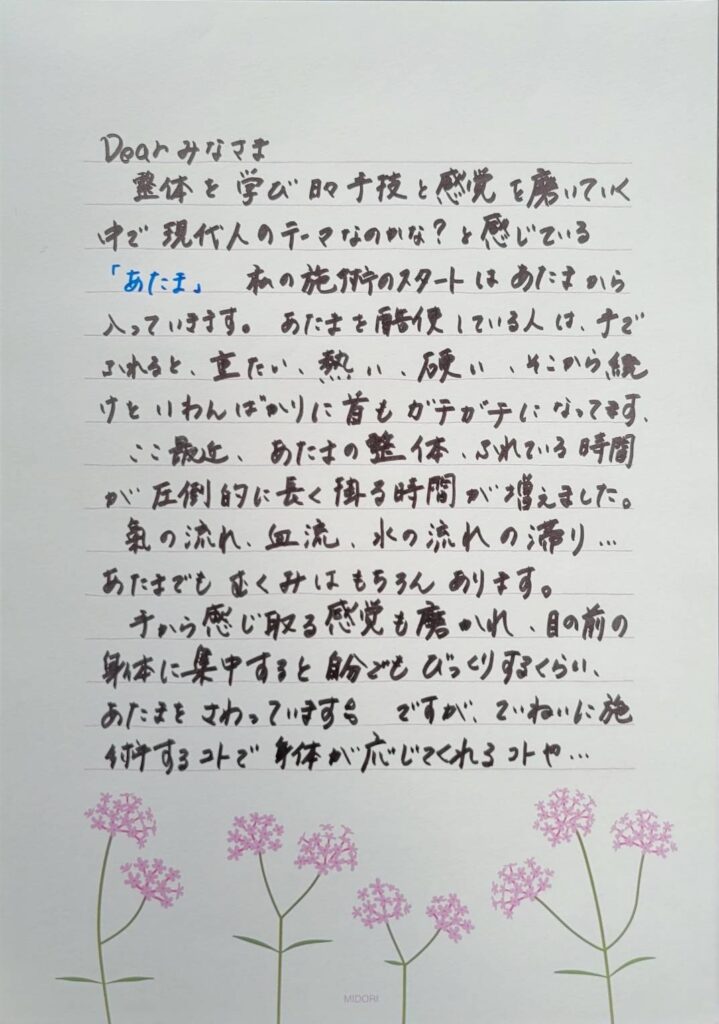 Dearみなさま
整体を学び日々手技と感覚を磨いていく
中で現代人のテーマなのかな？と感じている
「あたま」 私の施術のスタートはあたまから
入っていきます。あたまを酷使している人は、手で
ふれると、重たい、熱い、硬い、そこから続
けといわんばかりに首もガチガチになってます、
ここ最近、あたまの整体、ふれている時間
が圧倒的に長く掛る時間が増えました。
氣の流れ、血流、水の流れの滞り…
あたまでもむくみはもちろんあります。
手から感じ取る感覚も磨かれ、目の前の
身体に集中すると自分でもびっくりするくらい、
あたまをさわっています ですが、ていねいに施
術するコトで身体が応じてくれるコトや…
MIDORI